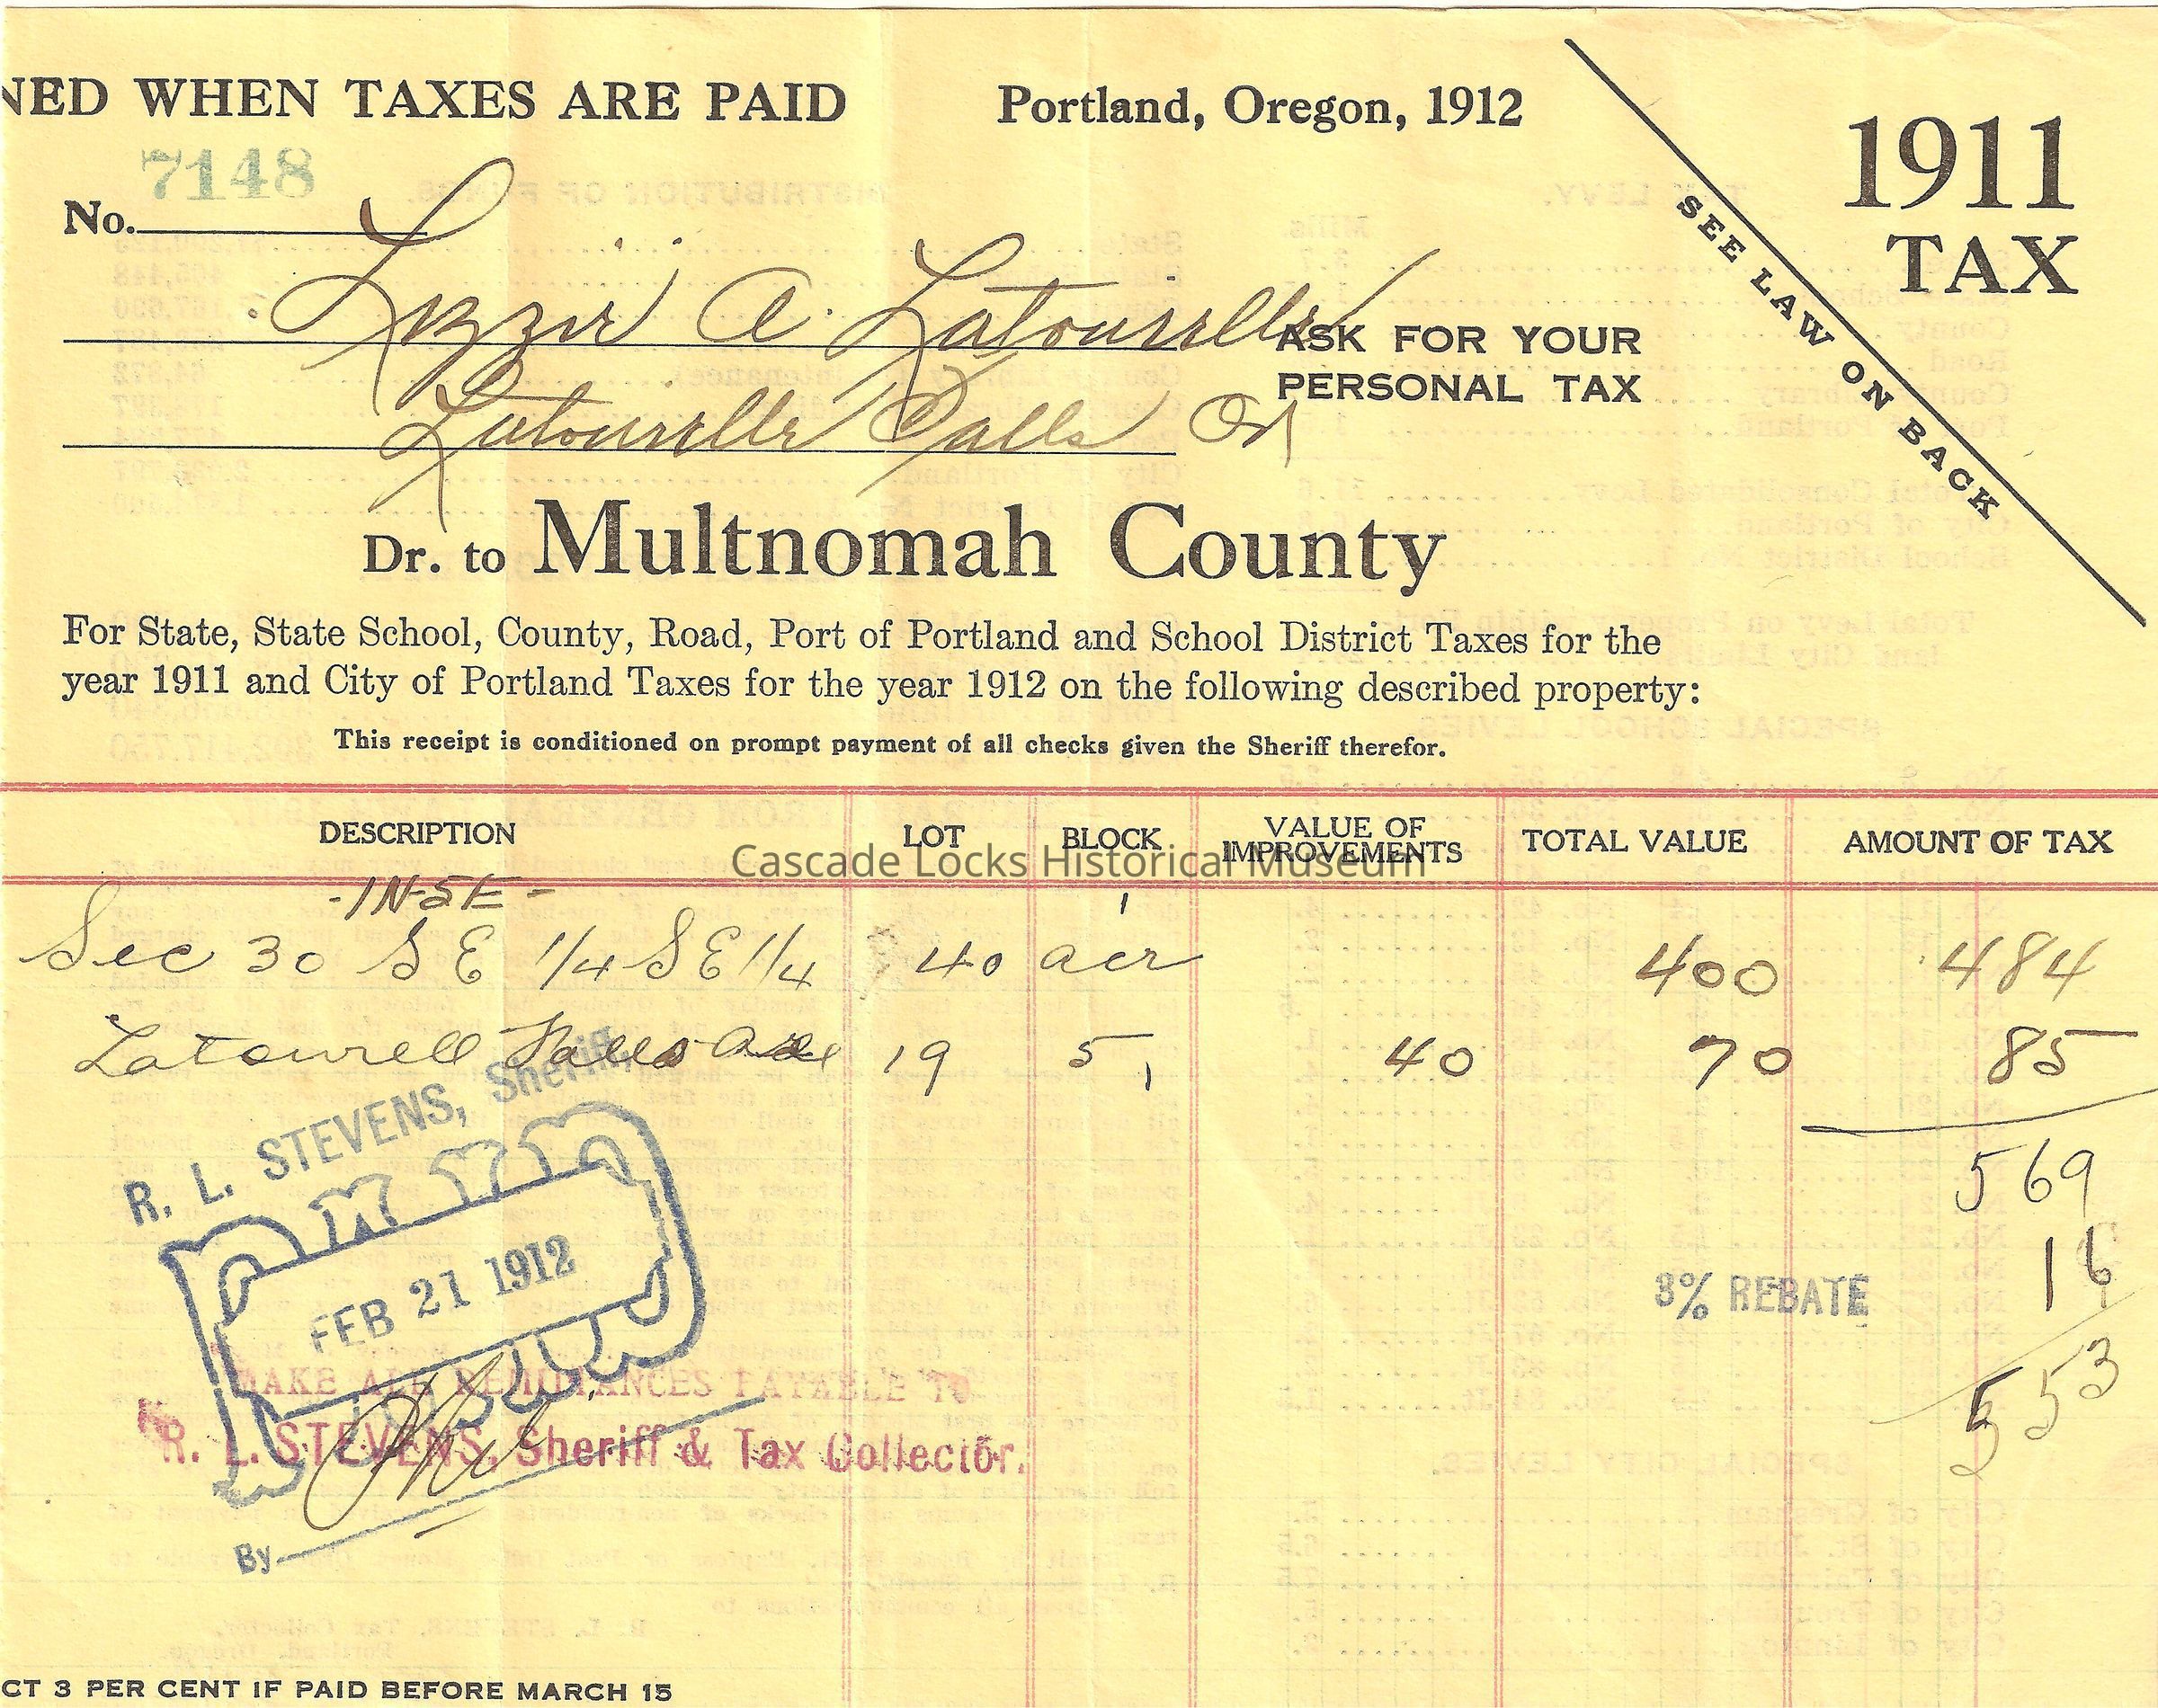 NED WHEN TAXES ARE PAID Portland, Oregon, 1912
1911
TAX
SEE LAW ON BACK
No. 7148
Lizzie A. Latourelle
ASK FOR YOUR
PERSONAL TAX
Latourelle Falls Or
Dr. to Multnomah County
For State, State School, County, Road, Port of Portland and School District Taxes for the
year 1911 and City of Portland Taxes for the year 1912 on the following described property:
This receipt is conditioned on prompt payment of all checks given the Sheriff therefor.
DESCRIPTION LOT BLOCK VALUE OF IMPROVEMENTS TOTAL VALUE AMOUNT OF TAX
Cascade Locks Historical Museum
-1N-5E-
Sec 30 SE 1/4 SE 1/4 40 acr 400 484
Latourell Falls 19 5 40 70 85
569
3% REBATE 16
553
R. L. STEVENS, Sheriff,
PAID
FEB 21 1912
MAKE ALL REMITTANCES PAYABLE TO
R. L. STEVENS, Sheriff & Tax Collector.
By
CT 3 PER CENT IF PAID BEFORE MARCH 15